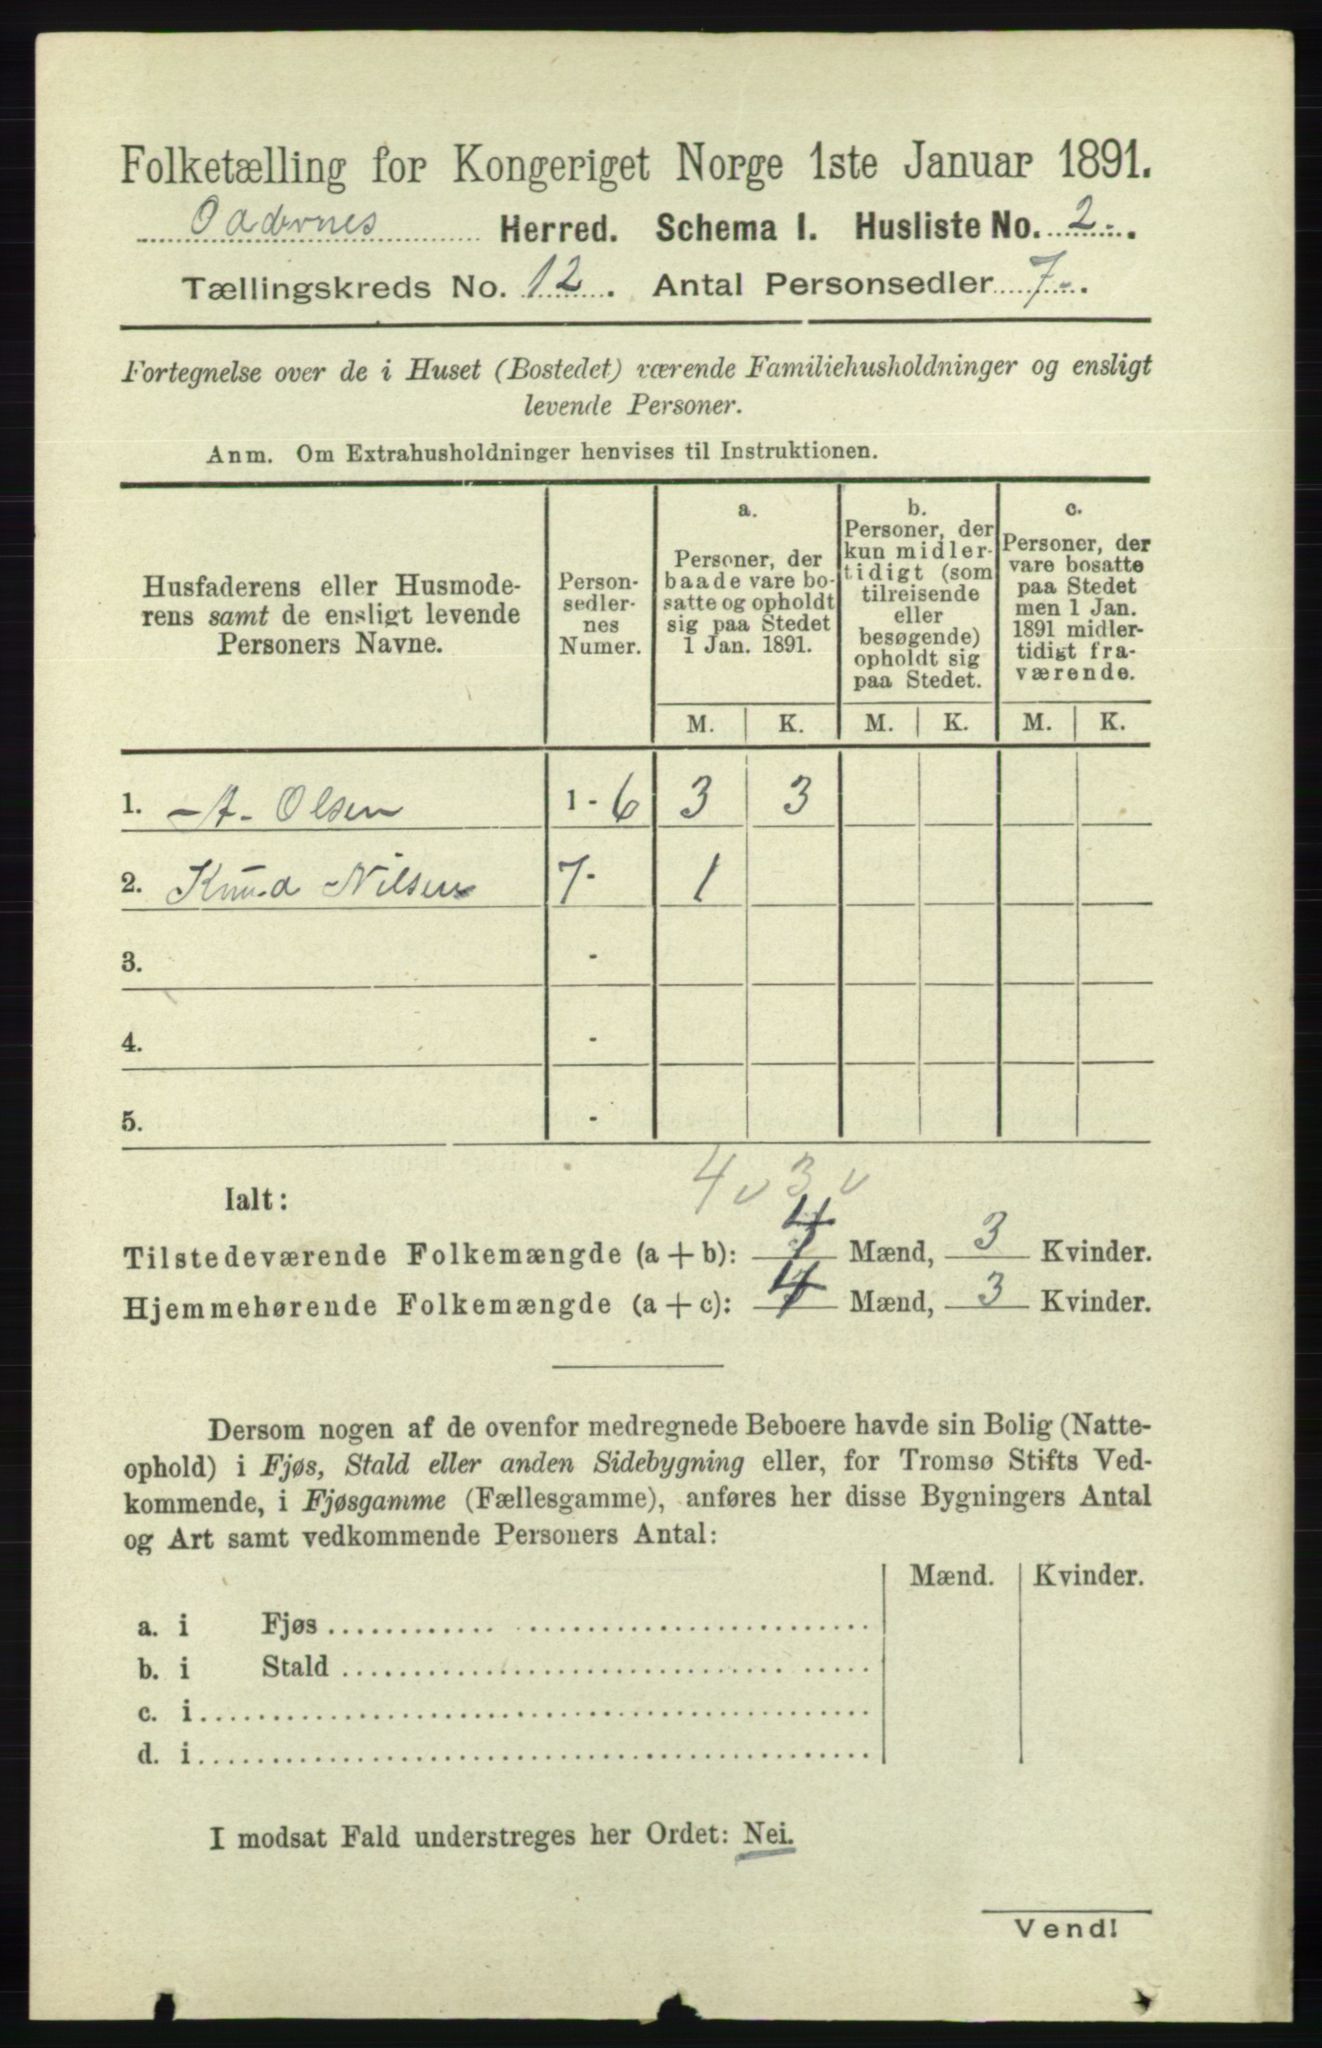 Folketælling for Kongeriget Norge 1ste Januar 1891.
Oddernes Herred. Schema I. Husliste No. 2-.
Tællingskreds No. 12. Antal Personsedler 7-.
Fortegnelse over de i Huset (Bostedet) værende Familiehusholdninger og ensligt
levende Personer.
Anm. Om Extrahusholdninger henvises til Instruktionen.
Husfaderens eller Husmode-
rens samt de ensligt levende
Personers Navne.
Person-
sedler-
nes
Numer.
a.
Personer, der
baade vare bo-
satte og opholdt
sig paa Stedet
1 Jan. 1891.
b.
Personer, der
kun midler-
tidigt (som
tilreisende
eller
besøgende)
opholdt sig
paa Stedet.
c.
Personer, der
vare bosatte
paa Stedet
men 1 Jan.
1891 midler-
tidigt fra-
værende.
M. K. M. K. M. K.
1. A. Olsen 1 - 6 3 3
2. Knud Nilsen 7- 1
3. -
4. -
5. -
4 3
Ialt:
Tilstedeværende Folkemængde (a + b): 4 Mænd, 3 Kvinder.
Hjemmehørende Folkemængde (a + c): 4 Mænd, 3 Kvinder.
Dersom nogen af de ovenfor medregnede Beboere havde sin Bolig (Natte-
ophold) i Fjøs, Stald eller anden Sidebygning eller, for Tromsø Stifts Ved-
kommende, i Fjøsgamme (Fællesgamme), anføres her disse Bygningers Antal
og Art samt vedkommende Personers Antal:
Mænd. Kvinder.
a. i Fjøs
b. i Stald
c. i
d. i
I modsat Fald understreges her Ordet: Nei.
Vend!